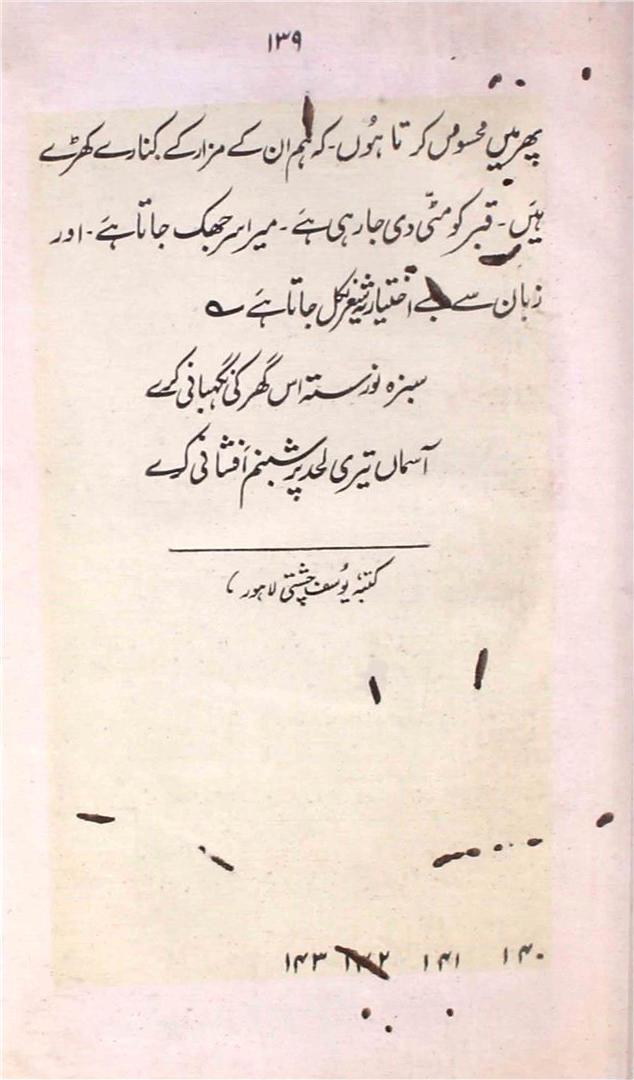 ۱۳۹
پھر میں محسوس کرتا ہوں۔ کہ ہم ان کے مزار کے کنارے کھڑے
ہیں۔ قبر کو مٹی دی جا رہی ہے۔ میرا سر جھک جاتا ہے۔ اور
زبان سے بے اختیار یہ شعر نکل جاتا ہے ؎
سبزہ نورستہ اس گھر کی نگہبانی کرے
آسماں تیری لحد پر شبنم افشانی کرے
کتبہٗ یُوسف چشتی لاہور
۱۴۰ ۱۴۱ ۱۴۲ ۱۴۳